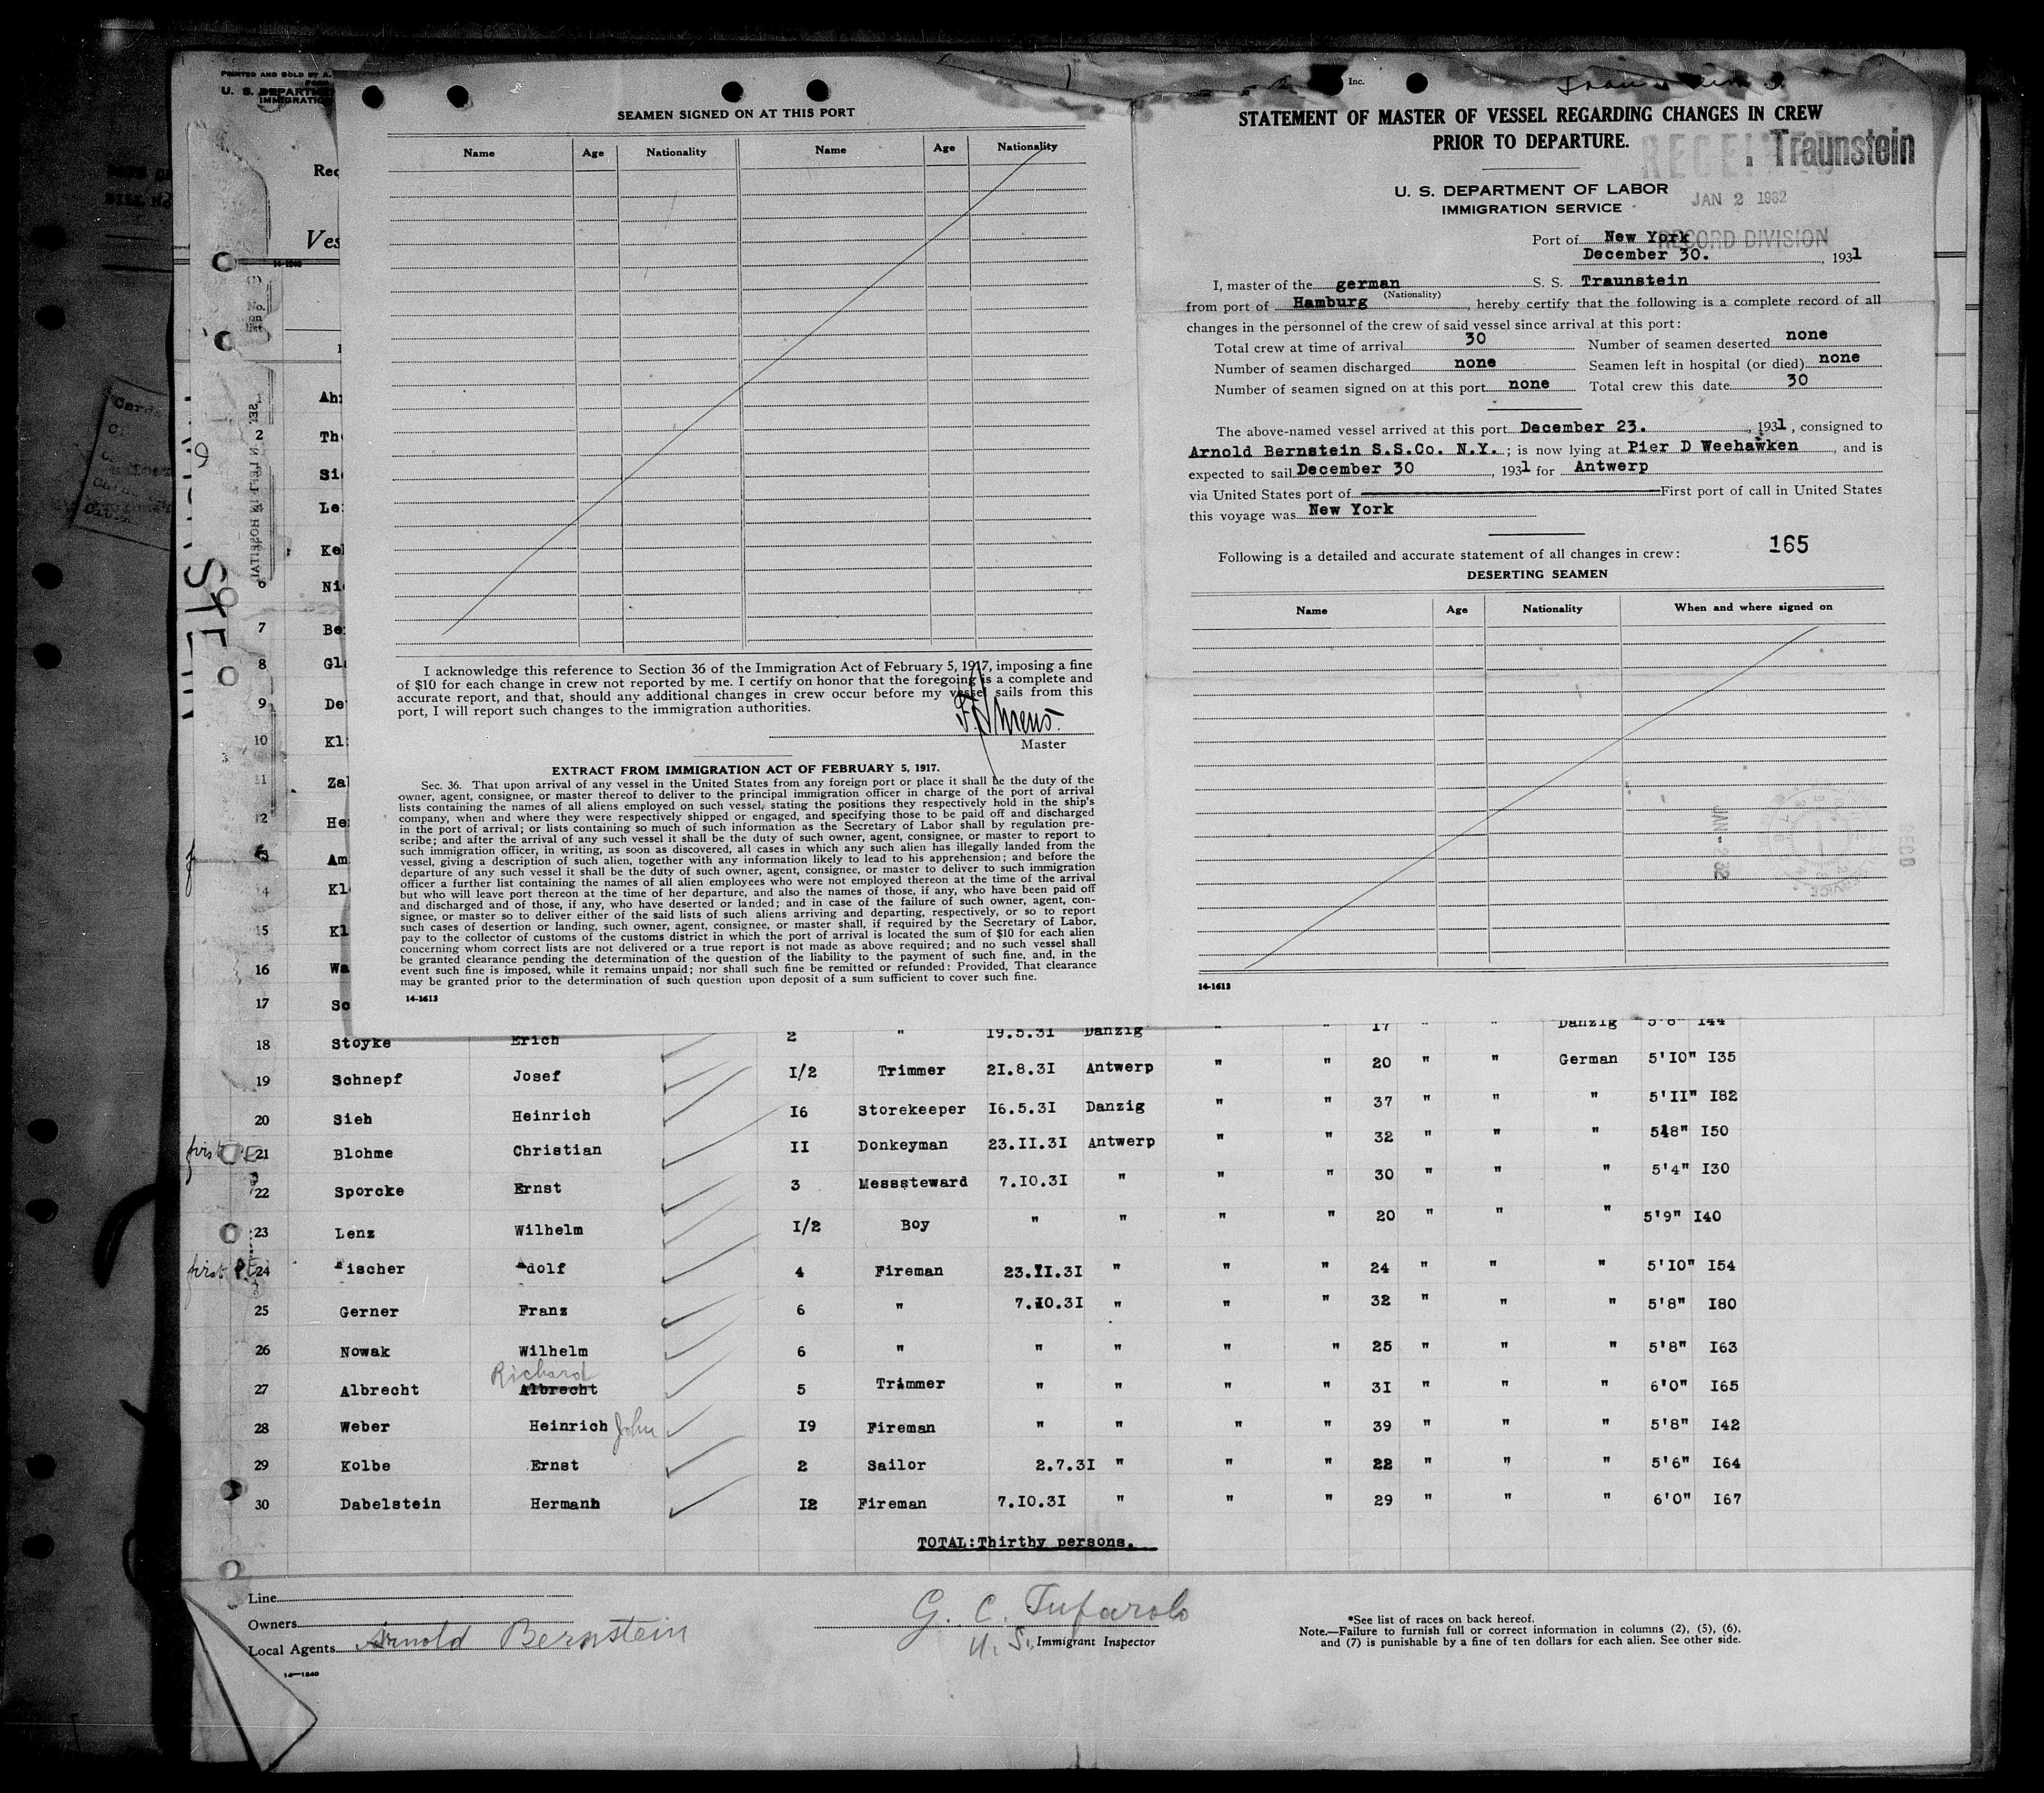 PRINTED AND SOLD BY A.
U. S. DEPARTM
IMMIGRATION
Rec
Ves
14-1240
(1)
No.
on
list
SEAMEN SIGNED ON AT THIS PORT
Name Age Nationality Name Age Nationality
I acknowledge this reference to Section 36 of the Immigration Act of February 5, 1917, imposing a fine
of $10 for each change in crew not reported by me. I certify on honor that the foregoing is a complete and
accurate report, and that, should any additional changes in crew occur before my vessel sails from this
port, I will report such changes to the immigration authorities.
F. Ahrens.
Master
EXTRACT FROM IMMIGRATION ACT OF FEBRUARY 5, 1917.
Sec. 36. That upon arrival of any vessel in the United States from any foreign port or place it shall be the duty of the
owner, agent, consignee, or master thereof to deliver to the principal immigration officer in charge of the port of arrival
lists containing the names of all aliens employed on such vessel, stating the positions they respectively hold in the ship's
company, when and where they were respectively shipped or engaged, and specifying those to be paid off and discharged
in the port of arrival; or lists containing so much of such information as the Secretary of Labor shall by regulation pre-
scribe; and after the arrival of any such vessel it shall be the duty of such owner, agent, consignee, or master to report to
such immigration officer, in writing, as soon as discovered, all cases in which any such alien has illegally landed from the
vessel, giving a description of such alien, together with any information likely to lead to his apprehension; and before the
departure of any such vessel it shall be the duty of such owner, agent, consignee, or master to deliver to such immigration
officer a further list containing the names of all alien employees who were not employed thereon at the time of the arrival
but who will leave port thereon at the time of her departure, and also the names of those, if any, who have been paid off
and discharged and of those, if any, who have deserted or landed; and in case of the failure of such owner, agent, con-
signee, or master so to deliver either of the said lists of such aliens arriving and departing, respectively, or so to report
such cases of desertion or landing, such owner, agent, consignee, or master shall, if required by the Secretary of Labor,
pay to the collector of customs of the customs district in which the port of arrival is located the sum of $10 for each alien
concerning whom correct lists are not delivered or a true report is not made as above required; and no such vessel shall
be granted clearance pending the determination of the question of the liability to the payment of such fine, and, in the
event such fine is imposed, while it remains unpaid; nor shall such fine be remitted or refunded: Provided, That clearance
may be granted prior to the determination of such question upon deposit of a sum sufficient to cover such fine.
14-1613
Inc.
STATEMENT OF MASTER OF VESSEL REGARDING CHANGES IN CREW
PRIOR TO DEPARTURE.
RECEIVED
Traunstein
U. S. DEPARTMENT OF LABOR
IMMIGRATION SERVICE
JAN 2 1932
RECORD DIVISION
Port of New York
December 30. , 1931
I, master of the german S. S. Traunstein
(Nationality)
from port of Hamburg , hereby certify that the following is a complete record of all
changes in the personnel of the crew of said vessel since arrival at this port:
Total crew at time of arrival 30 Number of seamen deserted none
Number of seamen discharged none Seamen left in hospital (or died) none
Number of seamen signed on at this port none Total crew this date 30
The above-named vessel arrived at this port December 23. , 1931, consigned to
Arnold Bernstein S.S.Co. N.Y. ; is now lying at Pier D Weehawken , and is
expected to sail December 30 , 1931 for Antwerp
via United States port of First port of call in United States
this voyage was New York
165
Following is a detailed and accurate statement of all changes in crew:
DESERTING SEAMEN
Name Age Nationality When and where signed on
JAN-2 32
14-1613
1 Ah
2 Th
Si
Le
Ke
6 Ni
7 Be
8 Gl
9 De
10 Kl
11 Za
12 He
Am
14 Kl
15 Kl
16 Wa
17 So
18 Stoyke Erich 2 " 19.5.31 Danzig " " 17 " " Danzig 5'8" 144
19 Schnepf Josef I/2 Trimmer 2I.8.3I Antwerp " " 20 " " German 5'IO" I35
20 Sieh Heinrich I6 Storekeeper I6.5.3I Danzig " " 37 " " " 5'II" I82
first P.E. 21 Blohme Christian II Donkeyman 23.II.3I Antwerp " " 32 " " " 5'8" I50
22 Sporcke Ernst 3 Messsteward 7.IO.3I " " " 30 " " " 5'4" I30
23 Lenz Wilhelm I/2 Boy " " " " 20 " " " 5'9" I40
first P.E. 24 Fischer Adolf 4 Fireman 23.II.3I " " " 24 " " " 5'IO" I54
25 Gerner Franz 6 " 7.IO.3I " " " 32 " " " 5'8" I80
26 Nowak Wilhelm 6 " " " " " 25 " " " 5'8" I63
Richard
27 Albrecht Albrecht 5 Trimmer " " " " 3I " " " 6'0" I65
28 Weber Heinrich John I9 Fireman " " " " 39 " " " 5'8" I42
29 Kolbe Ernst 2 Sailor 2.7.3I " " " 22 " " " 5'6" I64
30 Dabelstein Hermann I2 Fireman 7.IO.3I " " " 29 " " " 6'0" I67
TOTAL:Thirthy persons.
Line
Owners
Local Agents Arnold Bernstein
14-1240
G. C. Tufarolo
U. S. Immigrant Inspector
*See list of races on back hereof.
Note.—Failure to furnish full or correct information in columns (2), (5), (6),
and (7) is punishable by a fine of ten dollars for each alien. See other side.